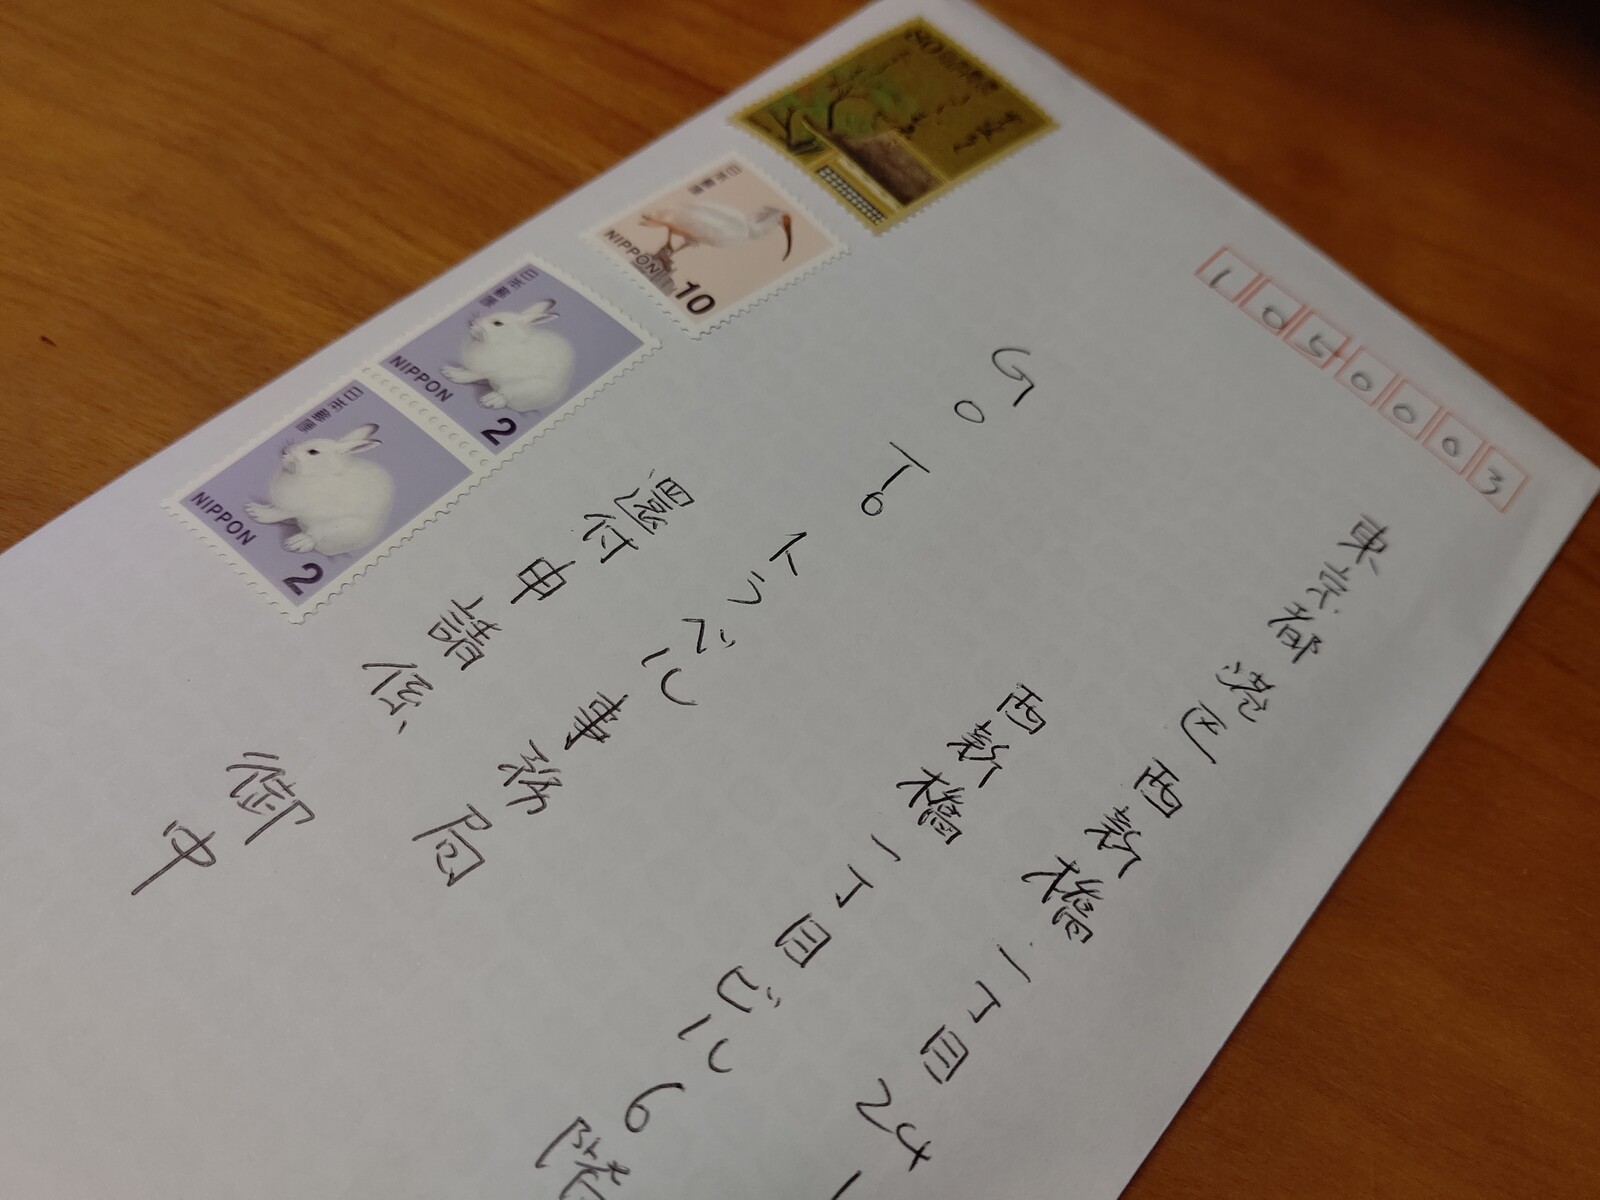 1050003
東京都港区西新橋一丁目24
西新橋一丁目ビル6階
Go To トラベル事務局
還付申請係
御中
80 日本郵便
日本郵便
NIPPON
10
日本郵便
NIPPON
2
日本郵便
NIPPON
2